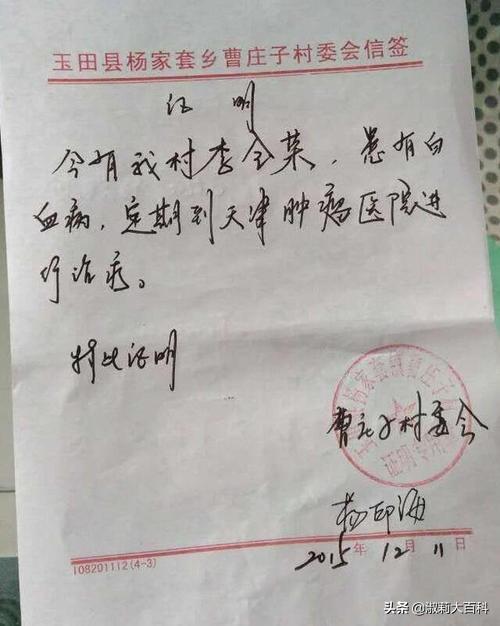 玉田县杨家套乡曹庄子村委会信签
证明
今有我村李全菜，患有白
血病，定期到天津肿瘤医院进
行治疗。
特此证明
曹庄子村委会
杨印海
2015年12月11日
108201112(4-3)
头条 @淑莉大百科